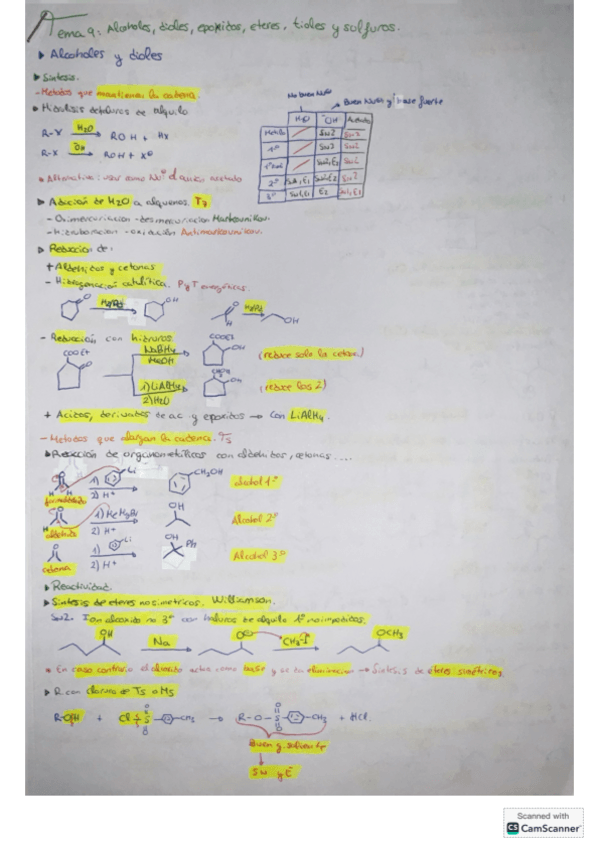 Tema 9: Alcoholes, dioles, epoxidos, eteres, tioles y sulfuros.
Alcoholes y dioles
Sintesis.
- Metodos que mantienen la cadena.
No buen Nu
Buen Nu y base fuerte
Hidrolisis de haluros de alquilo
H2O OH Acetato
R-X H2O ROH + HX
R-X OH ROH + X
Metilo SN2 SN2
1º SN2 SN2
2º SN1, E1 SN2, E2 SN2
3º SN1, E1 E2 SN1, E1
Alternativa: usar como Nu acetato
Adición de H2O a alquenos. T7
- Oximercuriacion - desmercuriacion Markovnikov.
- hidroboracion - oxidación Antimarkovnikov.
Reduccion de:
+ Aldehidos y cetonas
- Hidrogenación catalítica. P y T energéticas.
O H2/Pd OH O H H2/Pd OH
- Reducción con hidruros.
COOEt NaBH4 MeOH COOEt OH (reduce solo la cetona)
1) LiAlH4 2) H2O OH (reduce los 2)
+ Acidos, derivados de ac. y epoxidos → con LiAlH4.
- Metodos que alargan la cadena. T5
Reacción de organometálicos con aldehidos, cetonas ....
formaldehido 1) Li 2) H+ CH2OH alcohol 1º
aldehido 1) MeMgBr 2) H+ OH Alcohol 2º
cetona 1) Li 2) H+ OH Ph Alcohol 3º
Reactividad.
Síntesis de eteres no simetricos. Williamson.
SN2. Ion alcoxido no 3º con haluros de alquilo 1º no impedidos.
OH Na O CH3-I OCH3
En caso contrario el alcoxido actua como base y se da eliminacion → Sintesis de eteres simétricos.
R con cloruro de Ts o Ms
R-OH + Cl-S-CH3 → R-O-S-CH3 + HCl.
Buen g. saliente
SN y E
Scanned with
CS CamScanner